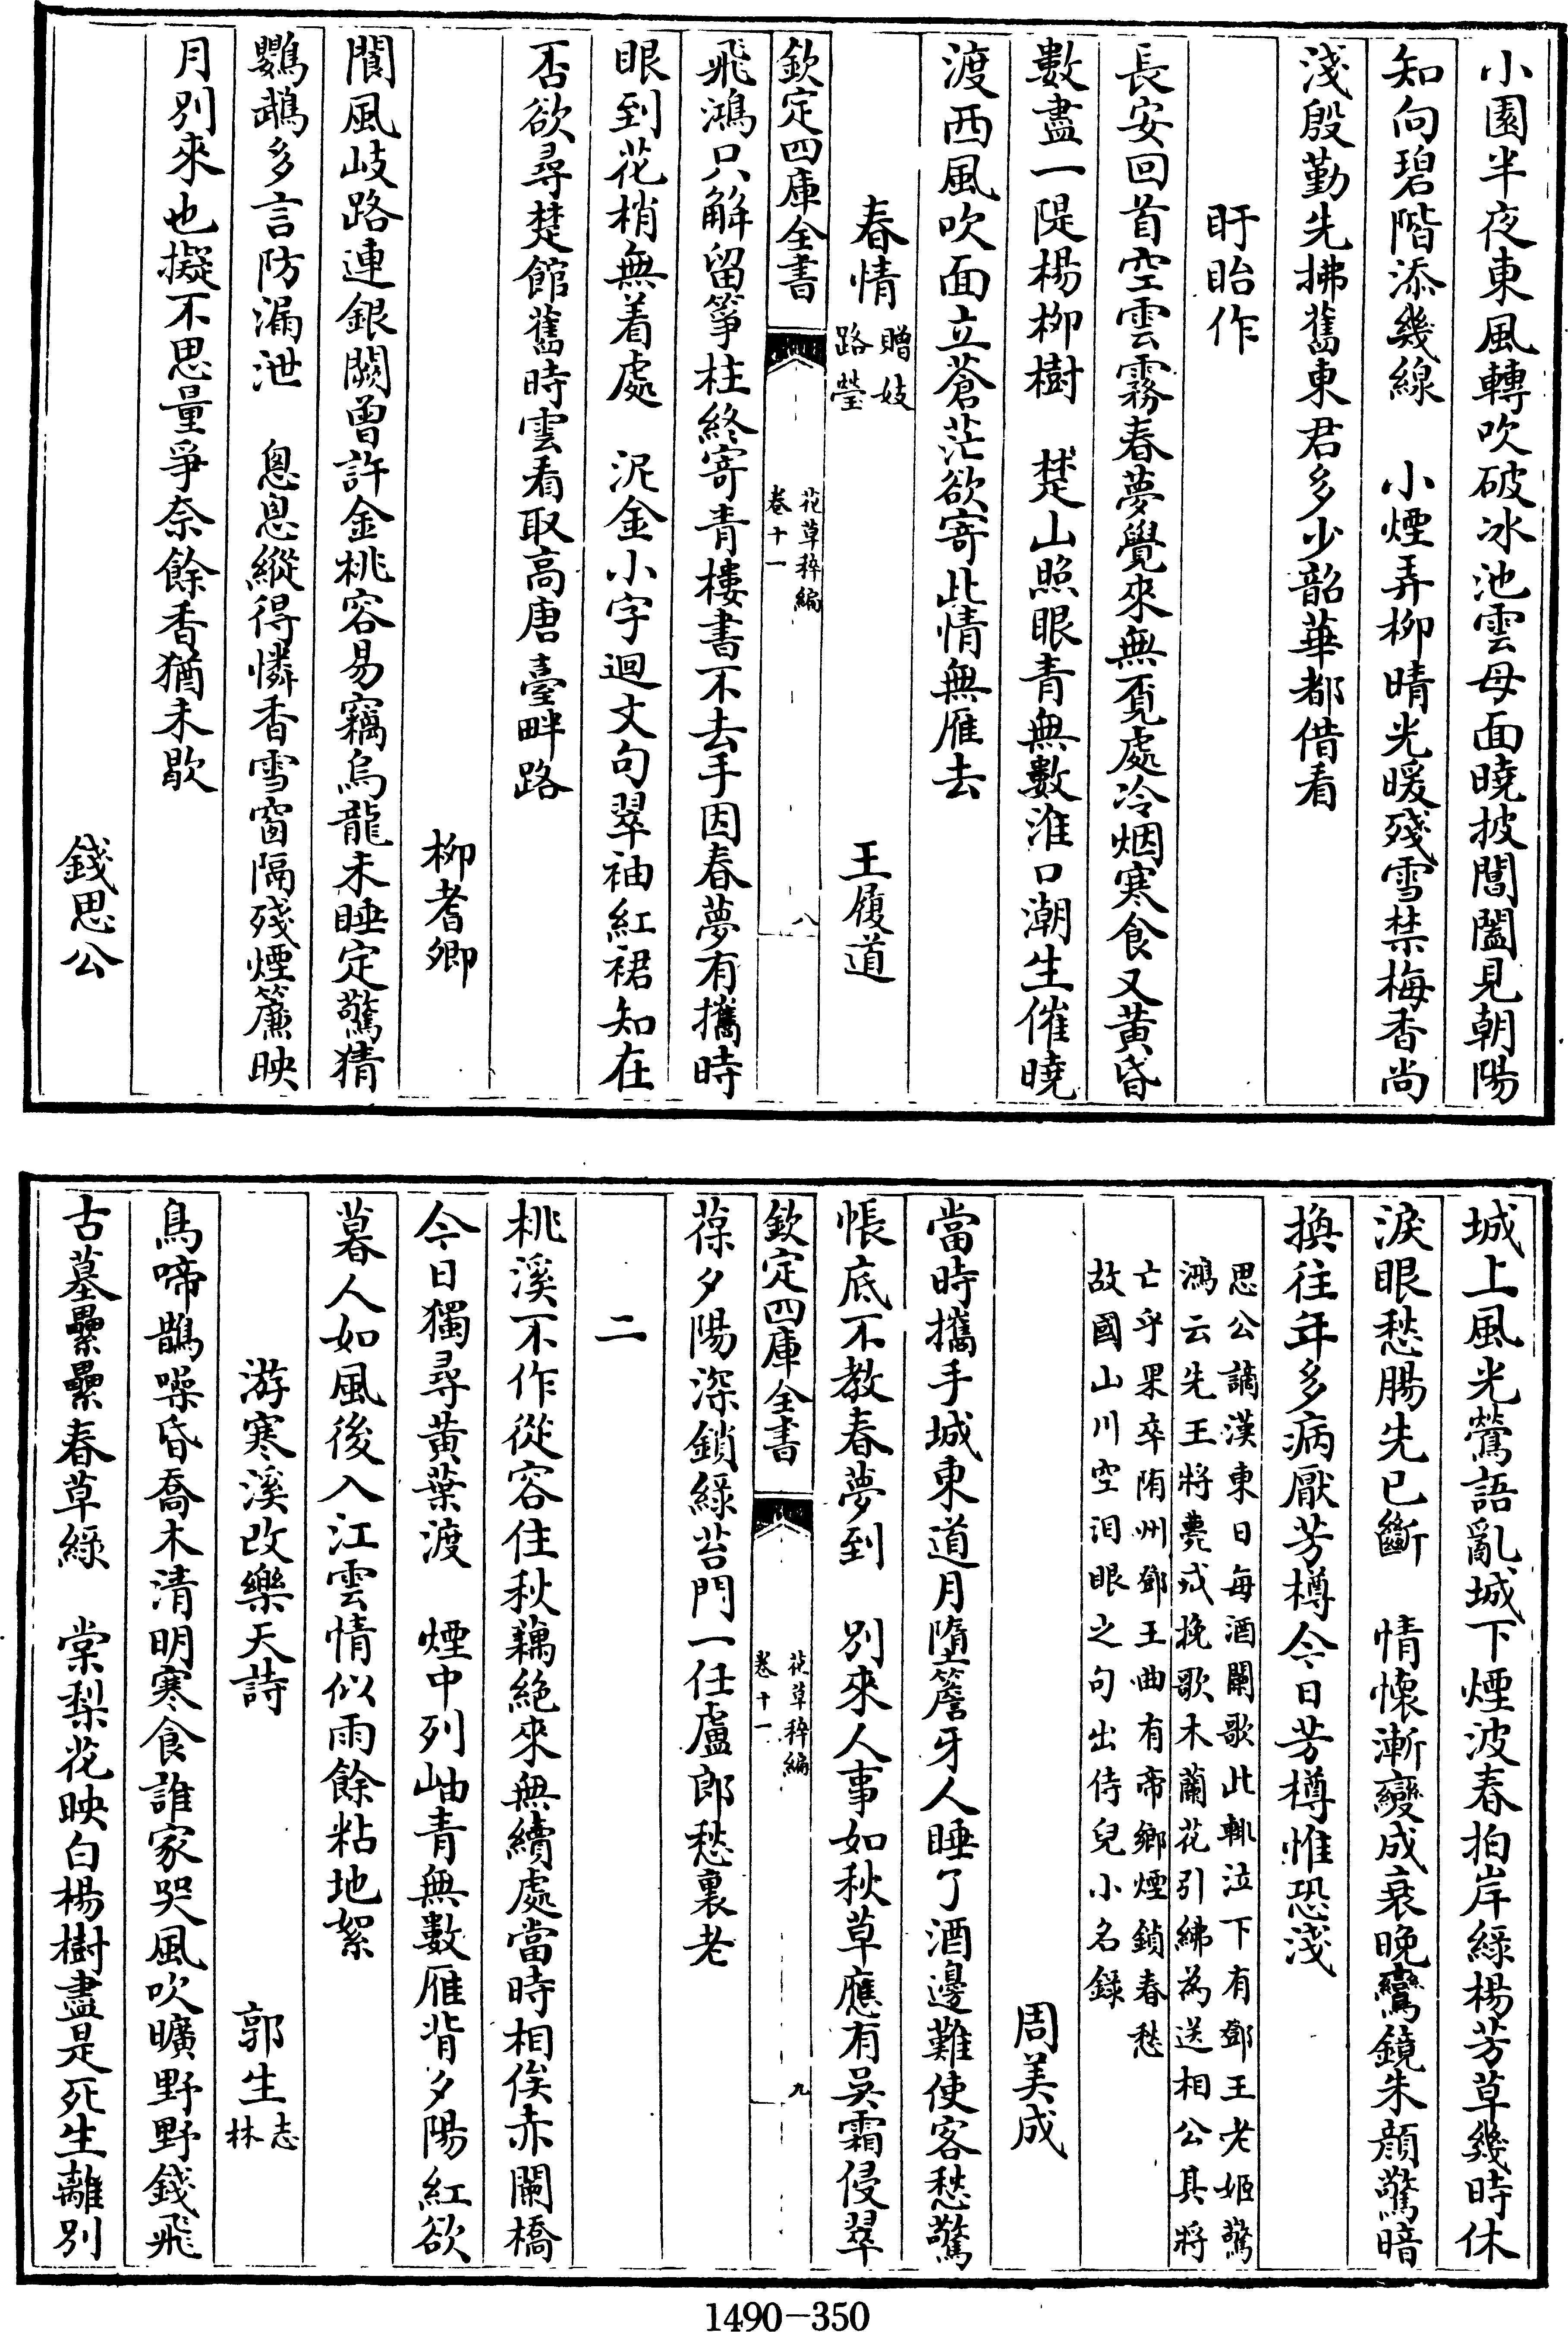 小園半夜東風轉吹破冰池雲母面曉披閶闔見朝陽
知向碧階添幾線　小煙弄柳晴光暖殘雪禁梅香尚
淺殷勤先拂舊東君多少韶華都借看
盱眙作
長安回首空雲霧春夢覺來無覓處冷烟寒食又黃昏
數盡一隄楊柳樹　楚山照眼青無數淮口潮生催曉
渡西風吹面立蒼茫欲寄此情無雁去
春情贈妓路瑩　王履道
欽定四庫全書　花草稡編卷十一　八
飛鴻只解留箏柱終寄青樓書不去手因春夢有攜時
眼到花梢無着處　泥金小字迴文句翠袖紅裙知在
否欲尋楚館舊時雲看取高唐臺畔路
柳耆卿
閬風岐路連銀闕曾許金桃容易竊烏龍未睡定驚猜
鸚鵡多言防漏泄　悤悤縱得憐香雪窗隔殘煙簾映
月別來也擬不思量爭奈餘香猶未歇
錢思公
城上風光鶯語亂城下煙波春拍岸綠楊芳草幾時休
淚眼愁腸先已斷　情懷漸變成衰晚鸞鏡朱顏驚暗
換往年多病厭芳樽今日芳樽惟恐淺
思公謫漢東日每酒闌歌此輒泣下有鄧王老姬驚
鴻云先王將薨戒挽歌木蘭花引紼為送相公其將
亡乎果卒隋州鄧王曲有帝鄉煙鎖春愁
故國山川空泪眼之句出侍兒小名録
周美成
當時攜手城東道月墮簷牙人睡了酒邊難使客愁驚
帳底不教春夢到　別來人事如秋草應有吳霜侵翠
欽定四庫全書　花草稡編卷十一　九
葆夕陽深鎖綠苔門一任盧郎愁裏老
二
桃溪不作從容住秋藕絶來無續處當時相俟赤闌橋
今日獨尋黃葉渡　煙中列岫青無數雁背夕陽紅欲
暮人如風後入江雲情似雨餘粘地絮
游寒溪改樂天詩　郭生志林
鳥啼鵲噪昏喬木清明寒食誰家哭風吹曠野野錢飛
古墓纍纍春草綠　棠梨花映白楊樹盡是死生離別
1490-350